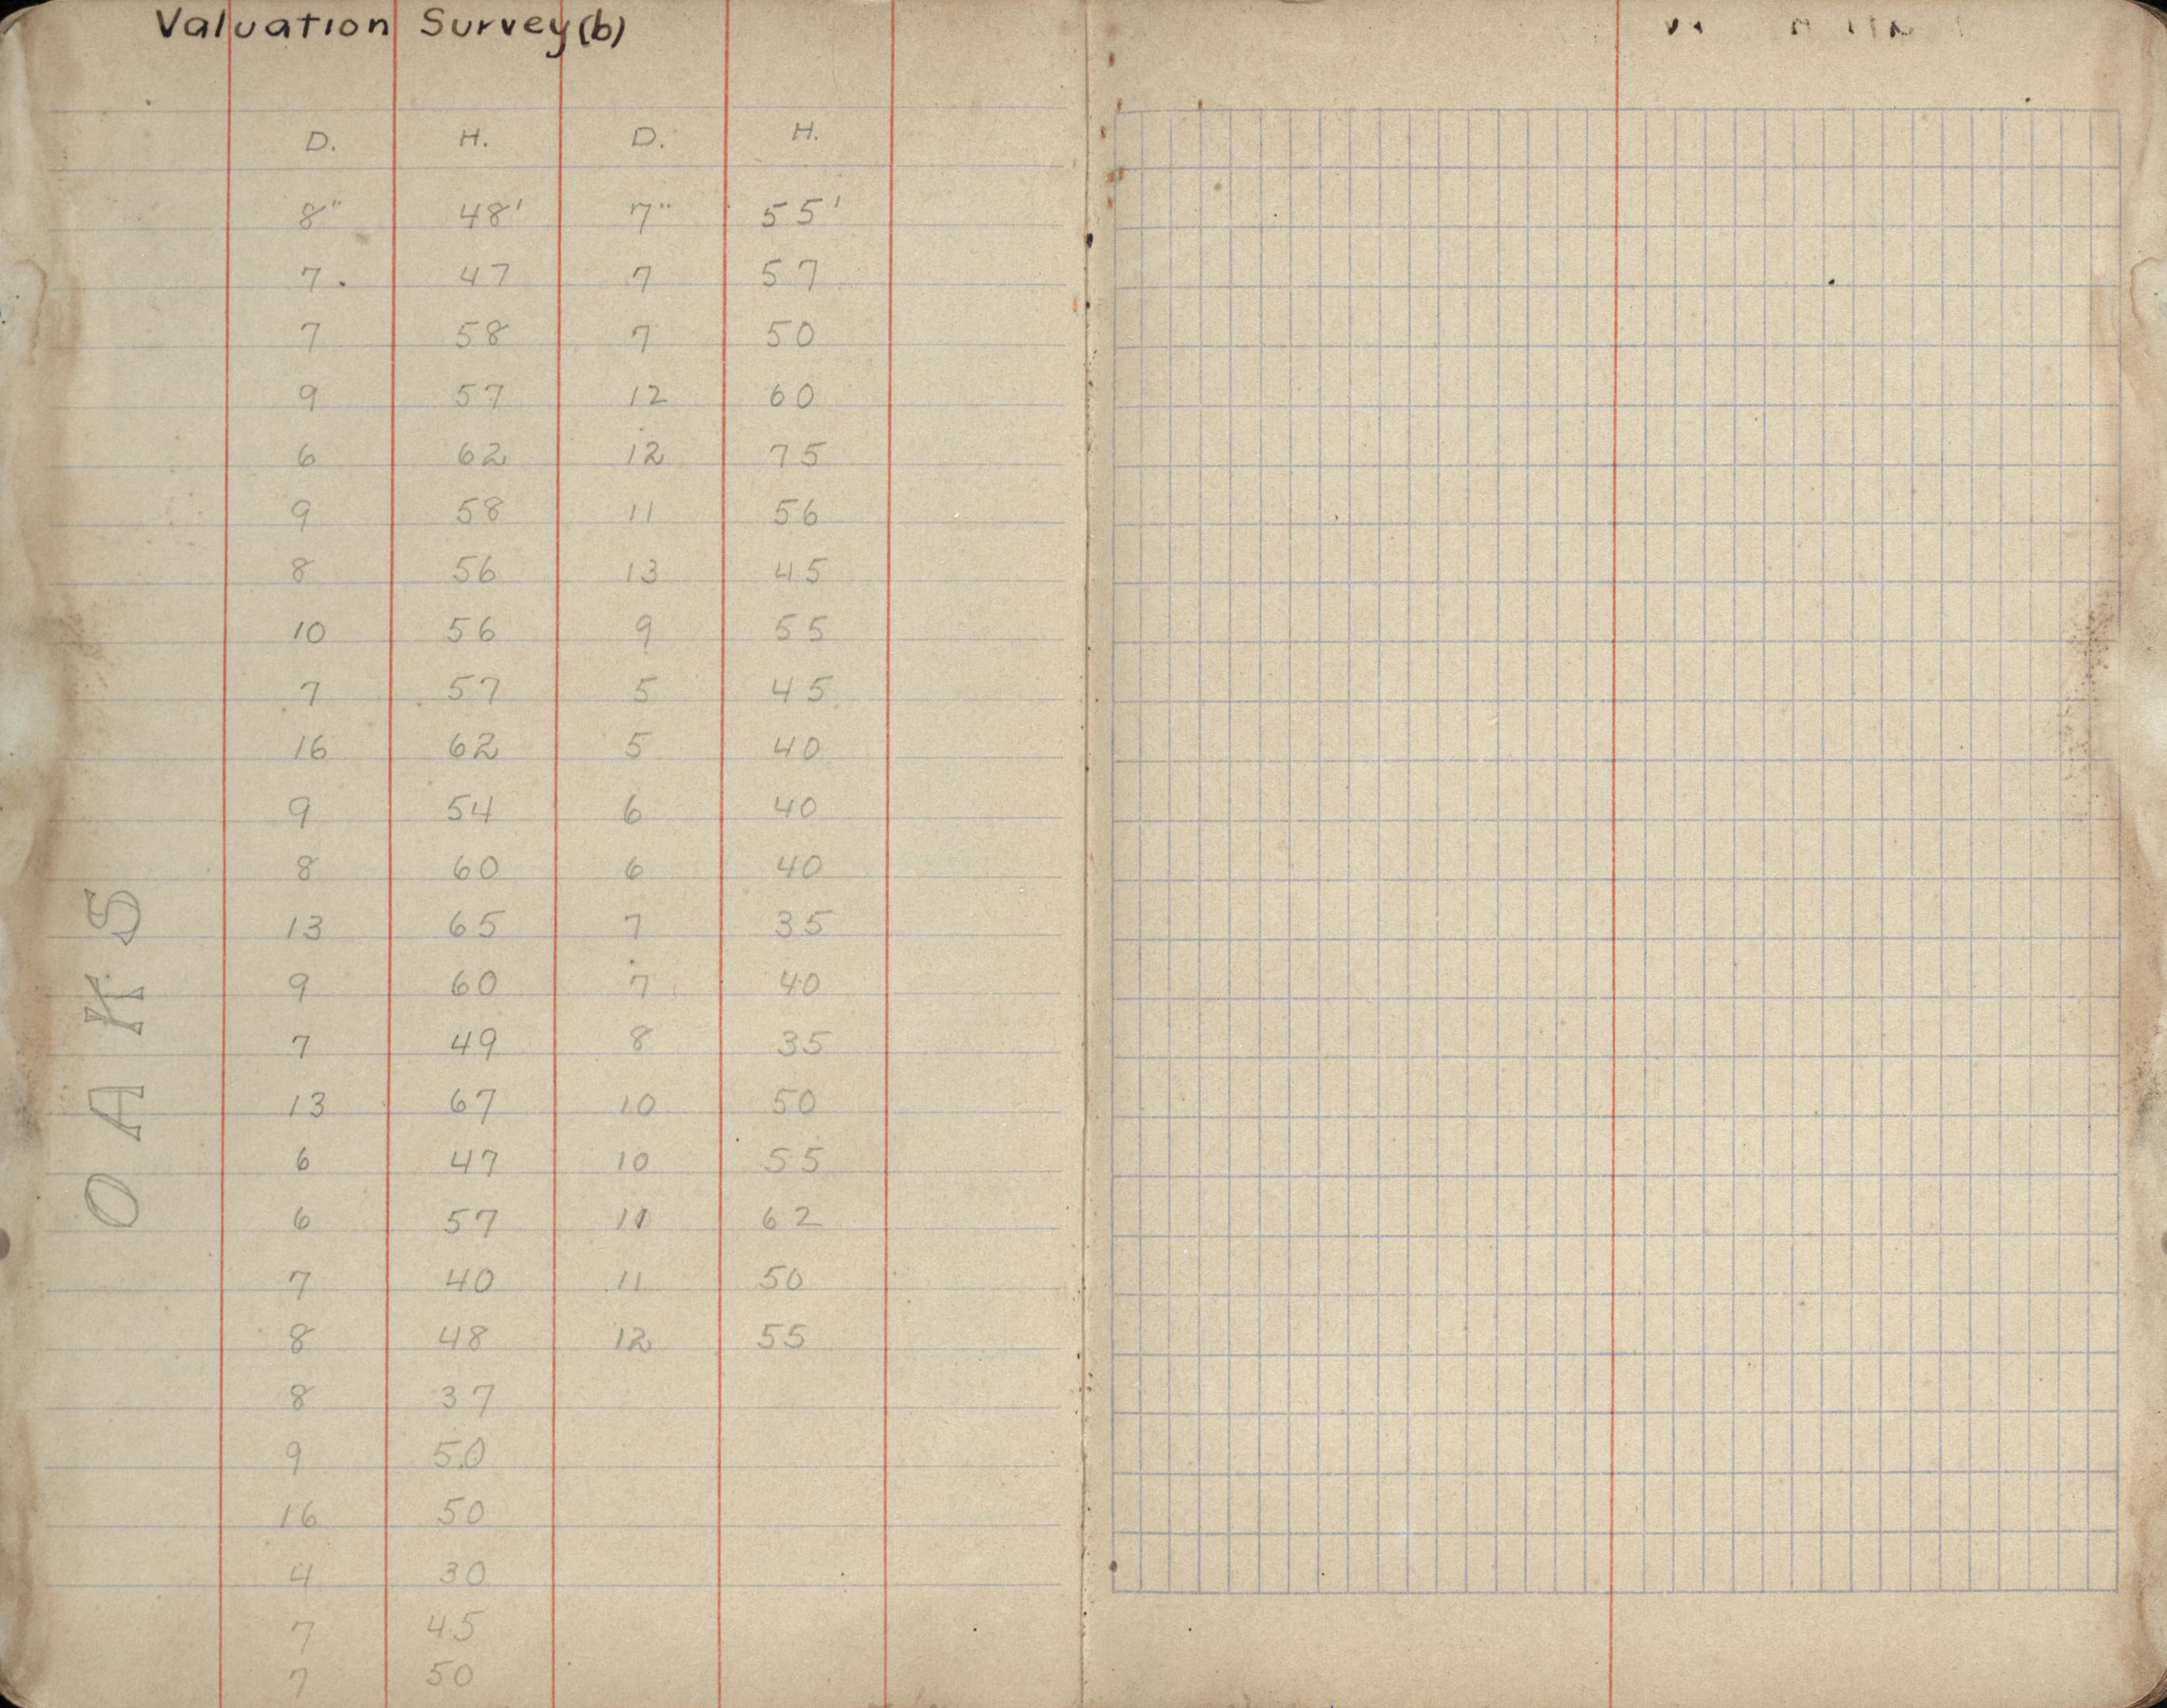 Valuation Survey (b)
D. H. D. H.
8" 48' 7" 55'
7. 47 7 57
7 58 7 50
9 57 12 60
6 62 12 75
9 58 11 56
8 56 13 45
10 56 9 55
7 57 5 45
16 62 5 40
9 54 6 40
8 60 6 40
13 65 7 35
9 60 7 40
7 49 8 35
13 67 10 50
6 47 10 55
6 57 11 62
7 40 11 50
8 48 12 55
8 37
9 50
16 50
4 30
7 45
7 50
OAKS